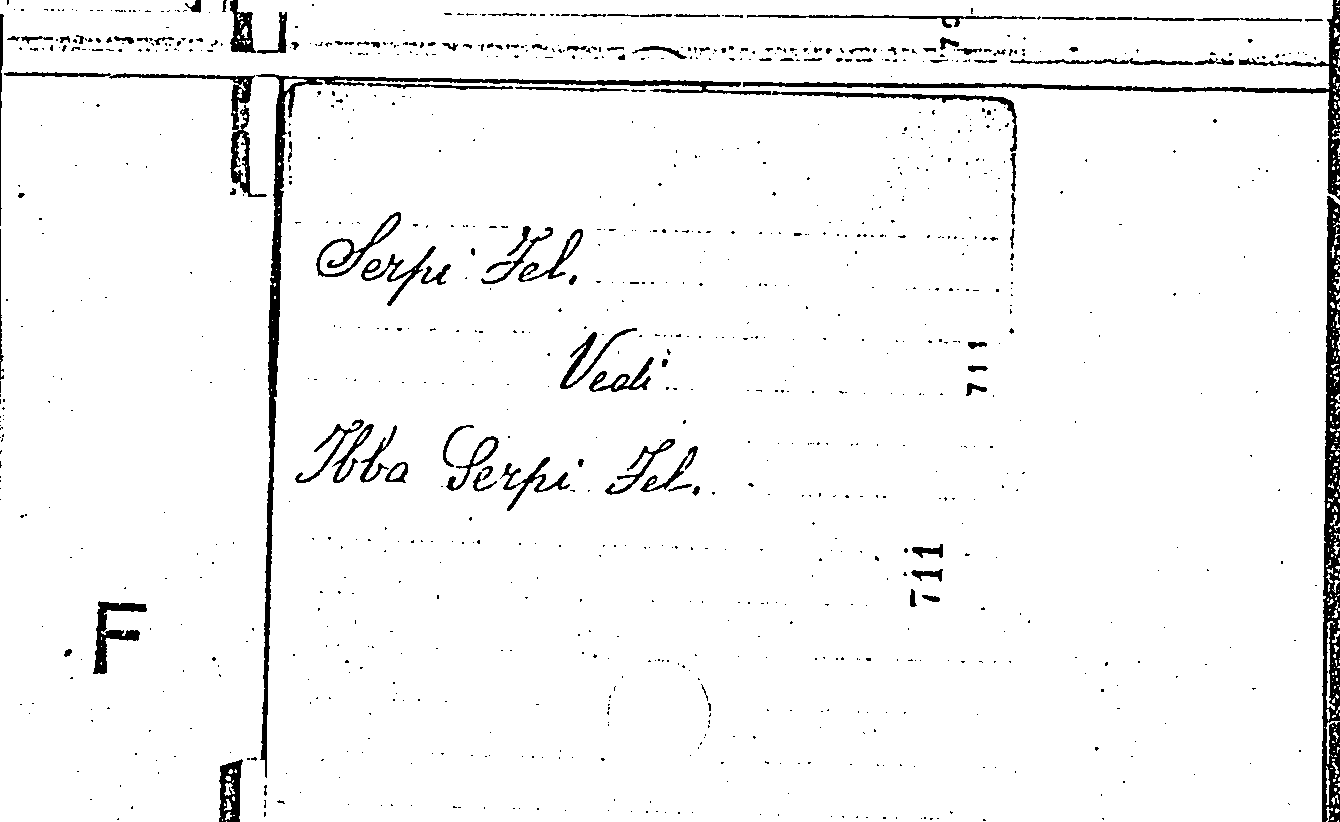 Serpi Fel.
Vedi
711
Ibba Serpi Fel.
711
F